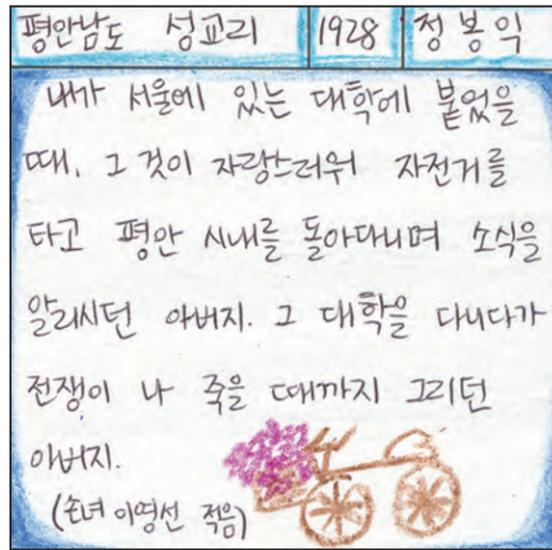 평안남도 성교리 1928 정봉익
내가 서울에 있는 대학에 붙었을
때, 그것이 자랑스러워 자전거를
타고 평안 시내를 돌아다니며 소식을
알리시던 아버지. 그 대학을 다니다가
전쟁이 나 죽을 때까지 그리던
아버지.
(손녀 이영선 적음)